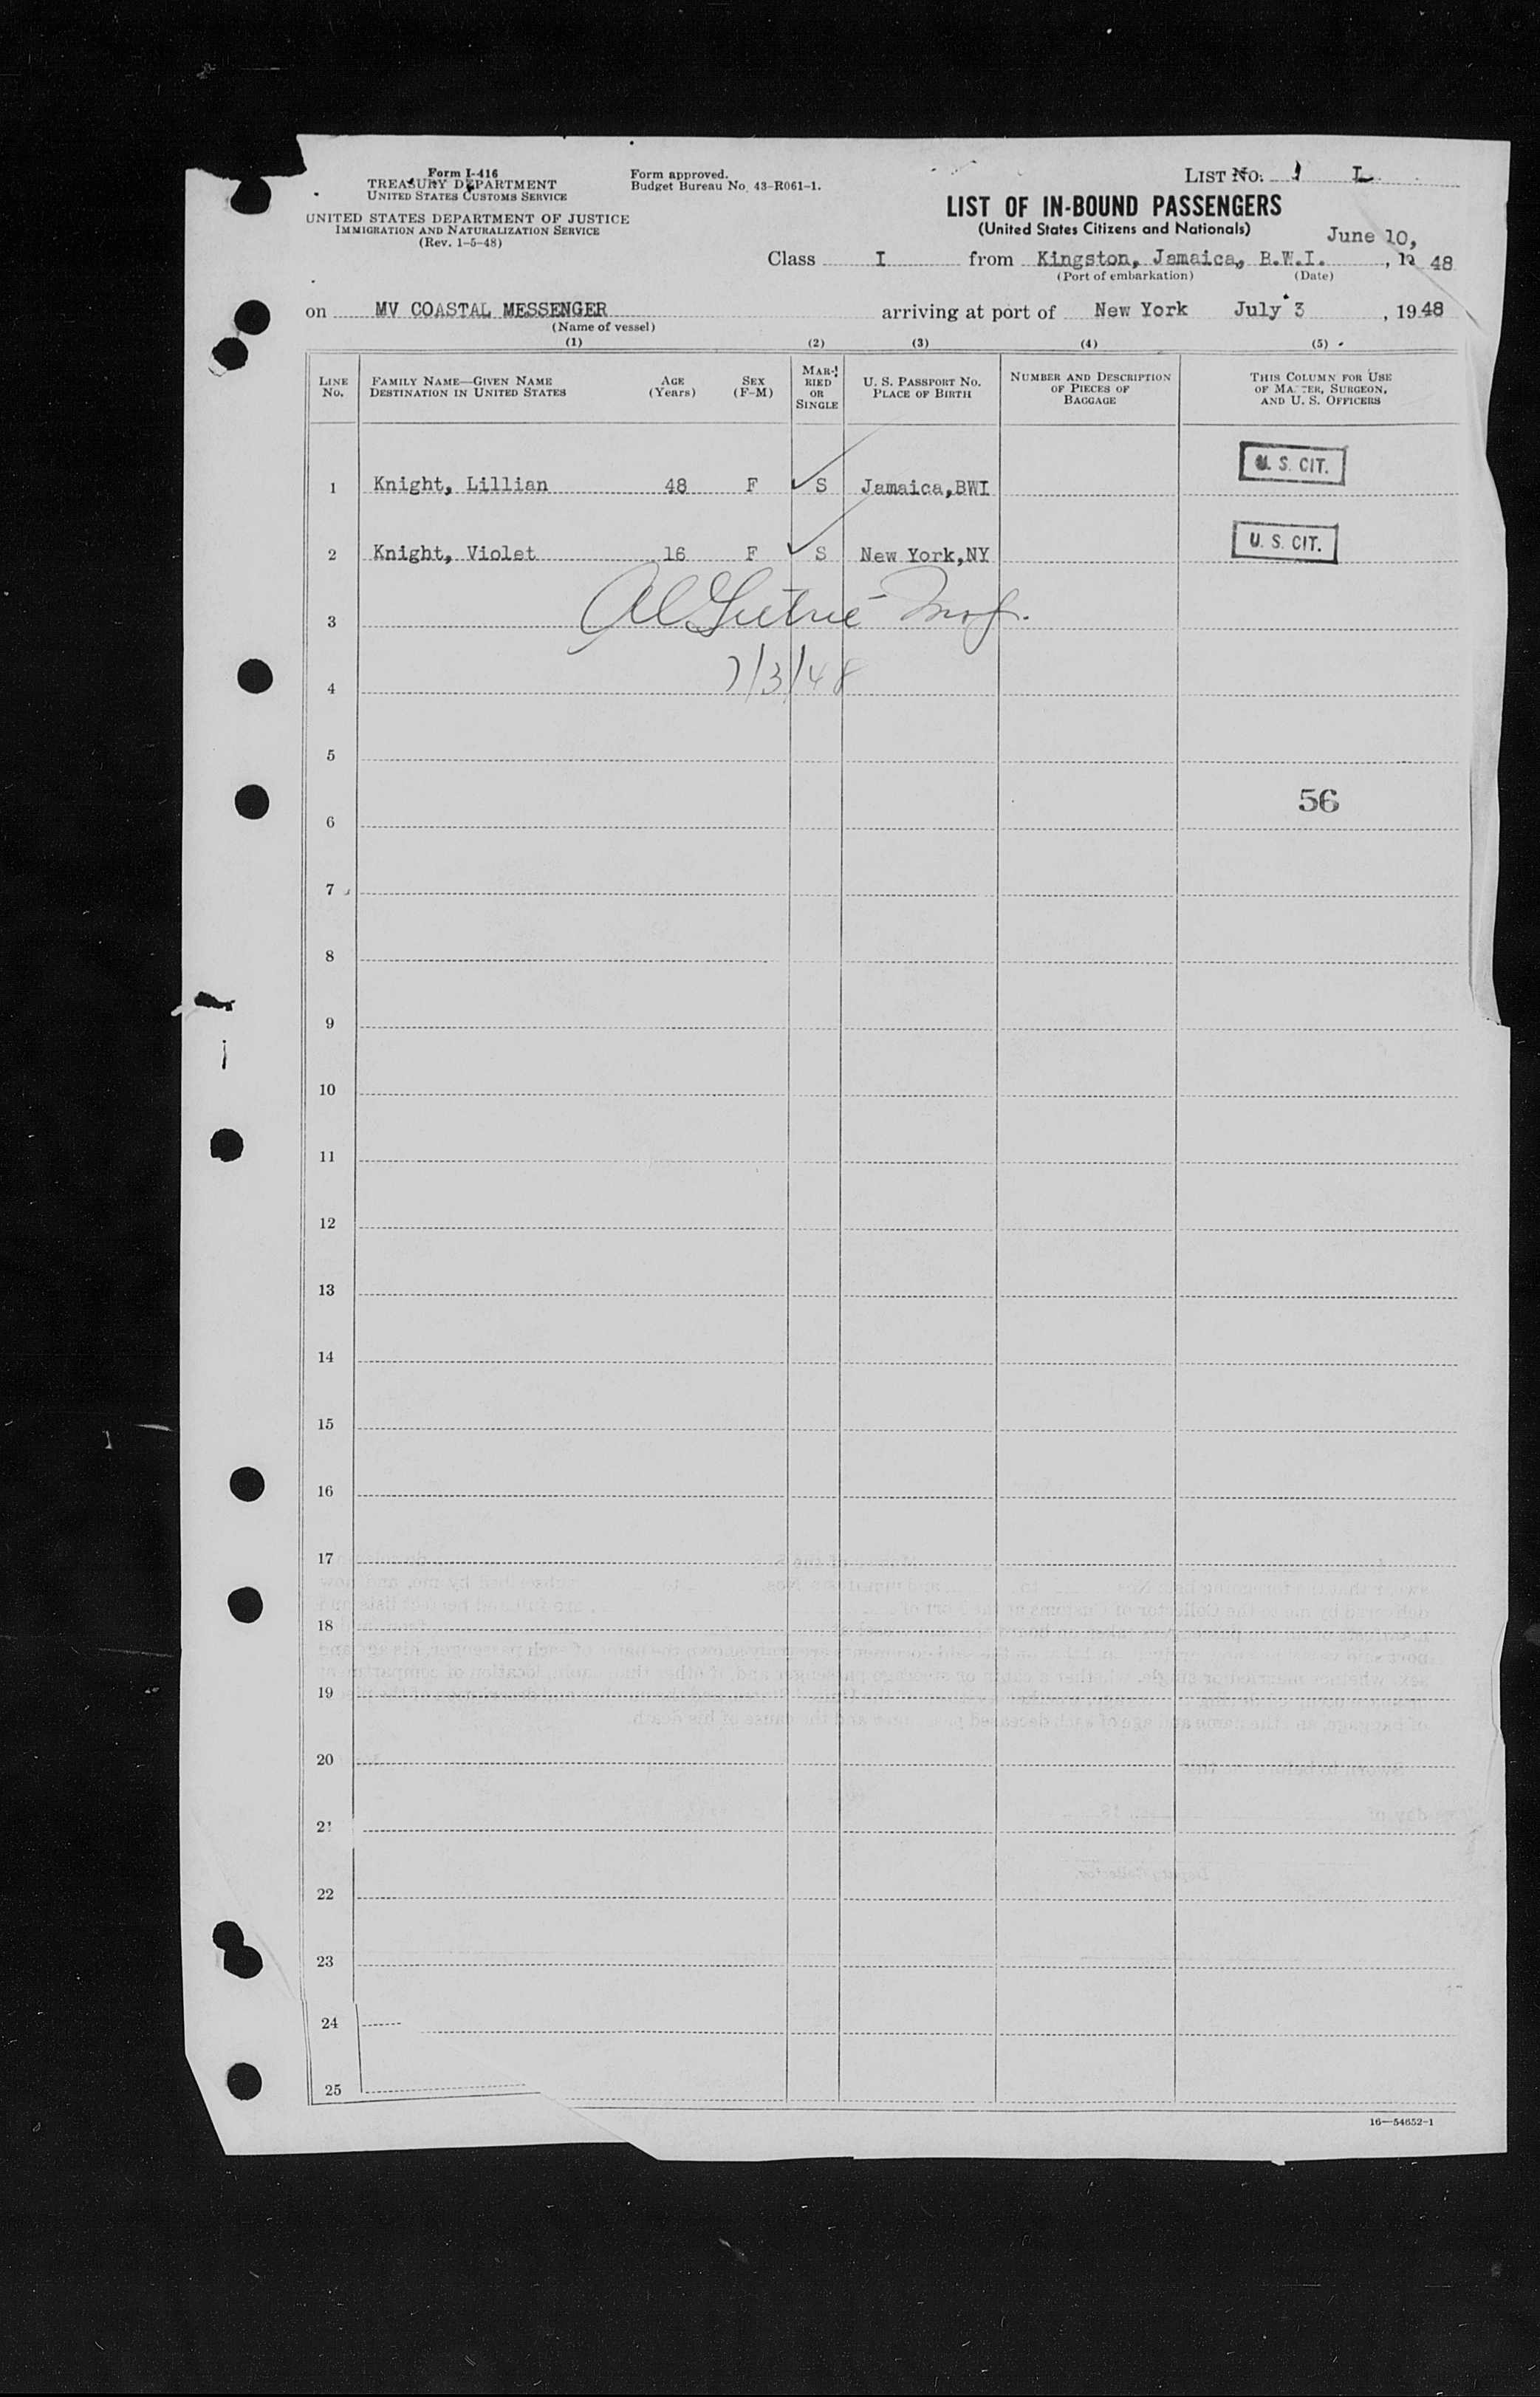 Form I-416
TREASURY DEPARTMENT
UNITED STATES CUSTOMS SERVICE
UNITED STATES DEPARTMENT OF JUSTICE
IMMIGRATION AND NATURALIZATION SERVICE
(Rev. 1-5-48)
Form approved.
Budget Bureau No. 43-R061-1.
LIST No. 1 I
LIST OF IN-BOUND PASSENGERS
(United States Citizens and Nationals)
June 10,
Class I from Kingston, Jamaica, B.W.I. , 19 48
(Port of embarkation) (Date)
on MV COASTAL MESSENGER arriving at port of New York July 3 , 1948
(Name of vessel)
(1) (2) (3) (4) (5)
LINE No.
FAMILY NAME—GIVEN NAME
DESTINATION IN UNITED STATES
AGE (Years)
SEX (F-M)
MARRIED OR SINGLE
U. S. PASSPORT NO.
PLACE OF BIRTH
NUMBER AND DESCRIPTION OF PIECES OF BAGGAGE
THIS COLUMN FOR USE OF MASTER, SURGEON, AND U. S. OFFICERS
1 Knight, Lillian 48 F S Jamaica,BWI U. S. CIT.
2 Knight, Violet 16 F S New York,NY U. S. CIT.
3
7/3/48
4
5
56
6
7
8
9
10
11
12
13
14
15
16
17
18
19
20
21
22
23
24
25
16—54652-1